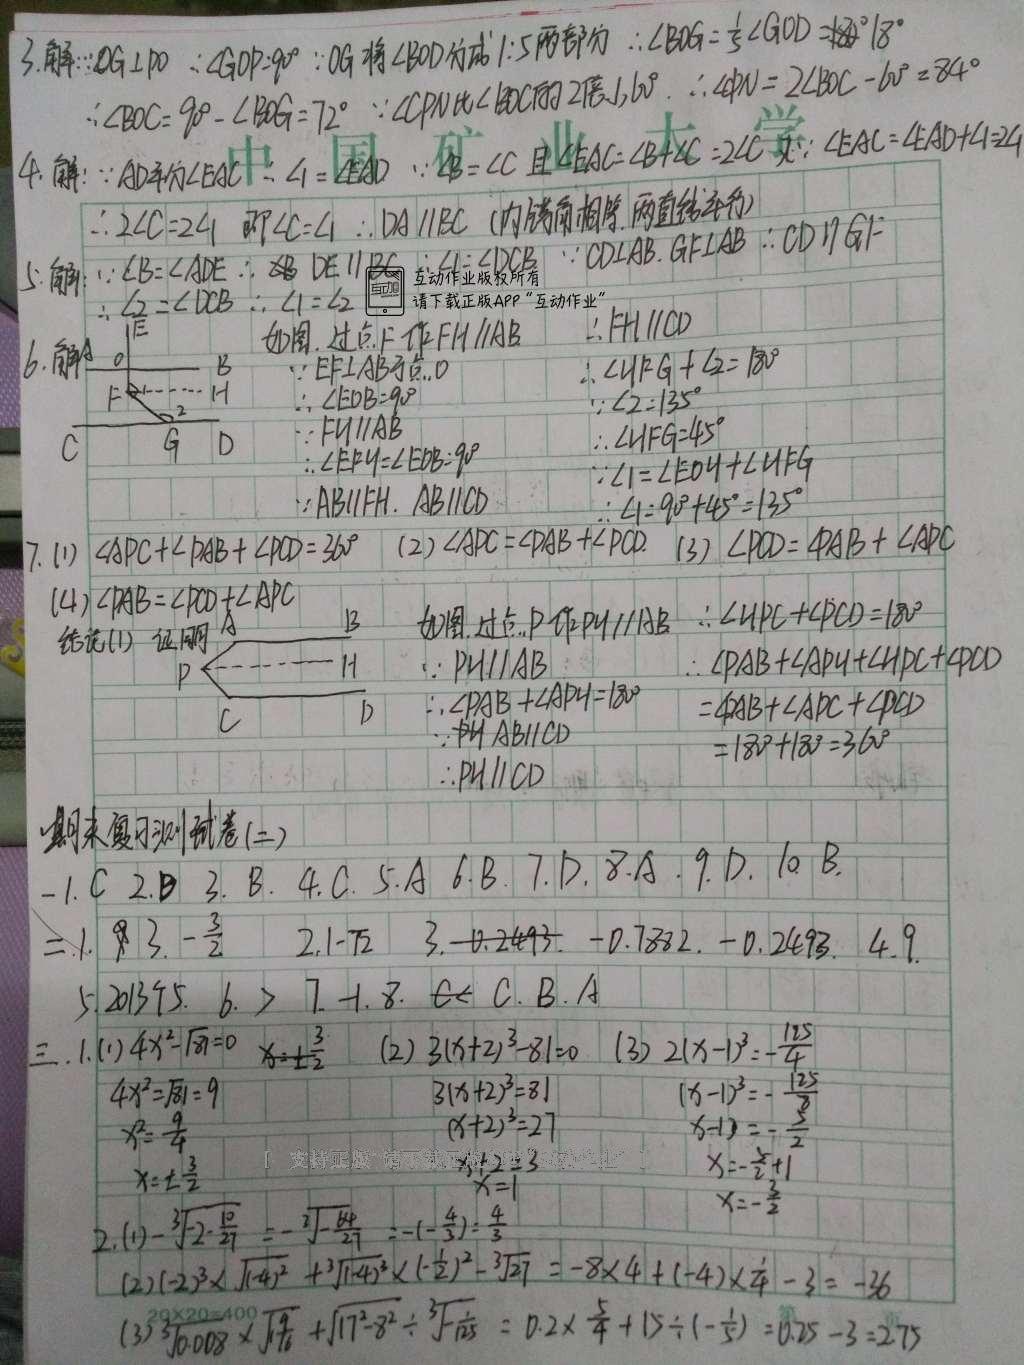 3.解:∵OG⊥PO ∴∠GOP=90° ∵OG将∠BOD分成1:5两部分 ∴∠BOG=1/5∠GOD=18°
∴∠BOC=90°-∠BOG=72° ∵∠CPN比∠BOC的2倍小60°. ∴∠CPN=2∠BOC-60°=84°
中国矿业大学
4.解:∵AD平分∠EAC ∴∠1=∠EAD ∵∠B=∠C 且∠EAC=∠B+∠C=2∠C 又∵∠EAC=∠EAD+∠1=2∠1
∴2∠C=2∠1 即∠C=∠1 ∴DA//BC (内错角相等.两直线平行)
5.解:∵∠B=∠ADE ∴DE//BC ∴∠1=∠DCB ∵CD⊥AB.GF⊥AB ∴CD//GF
∴∠2=∠DCB ∴∠1=∠2
互动作业版权所有
请下载正版APP“互动作业”
6.解
A O E B F H C G D 2
如图.过点F作FH//AB
∵EF⊥AB于点O
∴∠EOB=90°
∵FH//AB
∴∠EFH=∠EOB=90°
∵AB//FH.AB//CD
∴FH//CD
∴∠HFG+∠2=180°
∵∠2=135°
∴∠HFG=45°
∵∠1=∠EOH+∠HFG
∴∠1=90°+45°=135°
7.(1) ∠APC+∠PAB+∠PCD=360° (2)∠APC=∠PAB+∠PCD. (3) ∠PCD=∠PAB+∠APC
(4)∠PAB=∠PCD+∠APC
结论(1) 证明
A B P H C D
如图.过点P作PH//AB
∵PH//AB
∴∠PAB+∠APH=180°
∵AB//CD
∴PH//CD
∴∠HPC+∠PCD=180°
∴∠PAB+∠APH+∠HPC+∠PCD
=∠PAB+∠APC+∠PCD
=180°+180°=360°
期末复习测试卷(二)
一1.C 2.D 3.B. 4.C. 5.A 6.B. 7.D. 8.A. 9.D. 10.B.
二.1. 3. -3/2 2.1-√2 3. -0.2493. -0.7882. -0.2493. 4.9.
5.2013√5. 6.> 7.-1. 8. C<C.B.A
三.1.(1)4x²-√81=0 x=±3/2 (2)3(x+2)³-81=0 (3)2(x-1)³=-125/4
4x²=√81=9 3(x+2)³=81 (x-1)³=-125/8
x²=9/4 (x+2)³=27 x-1=-5/2
x=±3/2 x+2=3 x=-5/2+1
x=1 x=-3/2
2.(1)-³√(-2-10/27) =-³√(-64/27) =-(-4/3)=4/3
(2)(-2)³×√(-4)²+³√(-4)³×(-1/2)²-³√27=-8×4+(-4)×1/4-3=-36
20×20=400
(3)³√0.008×√(1 9/16)+√(17²-8²)÷³√(-1/125)=0.2×5/4+15÷(-1/5)=0.25-3=2.75